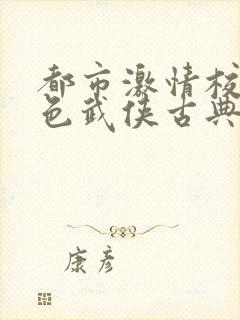 都市激情校
色武侠古典
康彦